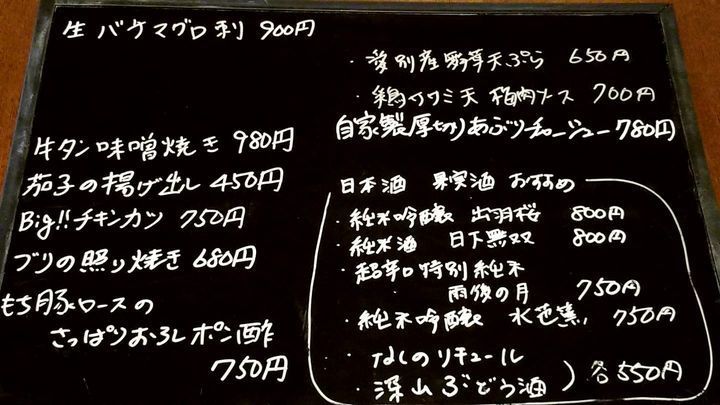 生バケマグロ刺 900円
牛タン味噌焼き 980円
茄子の揚げ出し 450円
Big!!チキンカツ 750円
ブリの照り焼き 680円
もち豚ロースの
さっぱりおろしポン酢
750円
・愛別産舞茸天ぷら 650円
・鶏ササミ天 梅肉ソース 700円
自家製厚切りあぶりチャーシュー 780円
日本酒 果実酒 おすすめ
・純米吟醸 出羽桜 800円
・純米酒 日下無双 800円
・超辛口特別純米
・雨後の月 750円
・純米吟醸 水芭蕉 750円
・なしのリキュール
・深山ぶどう酒 ) 各550円